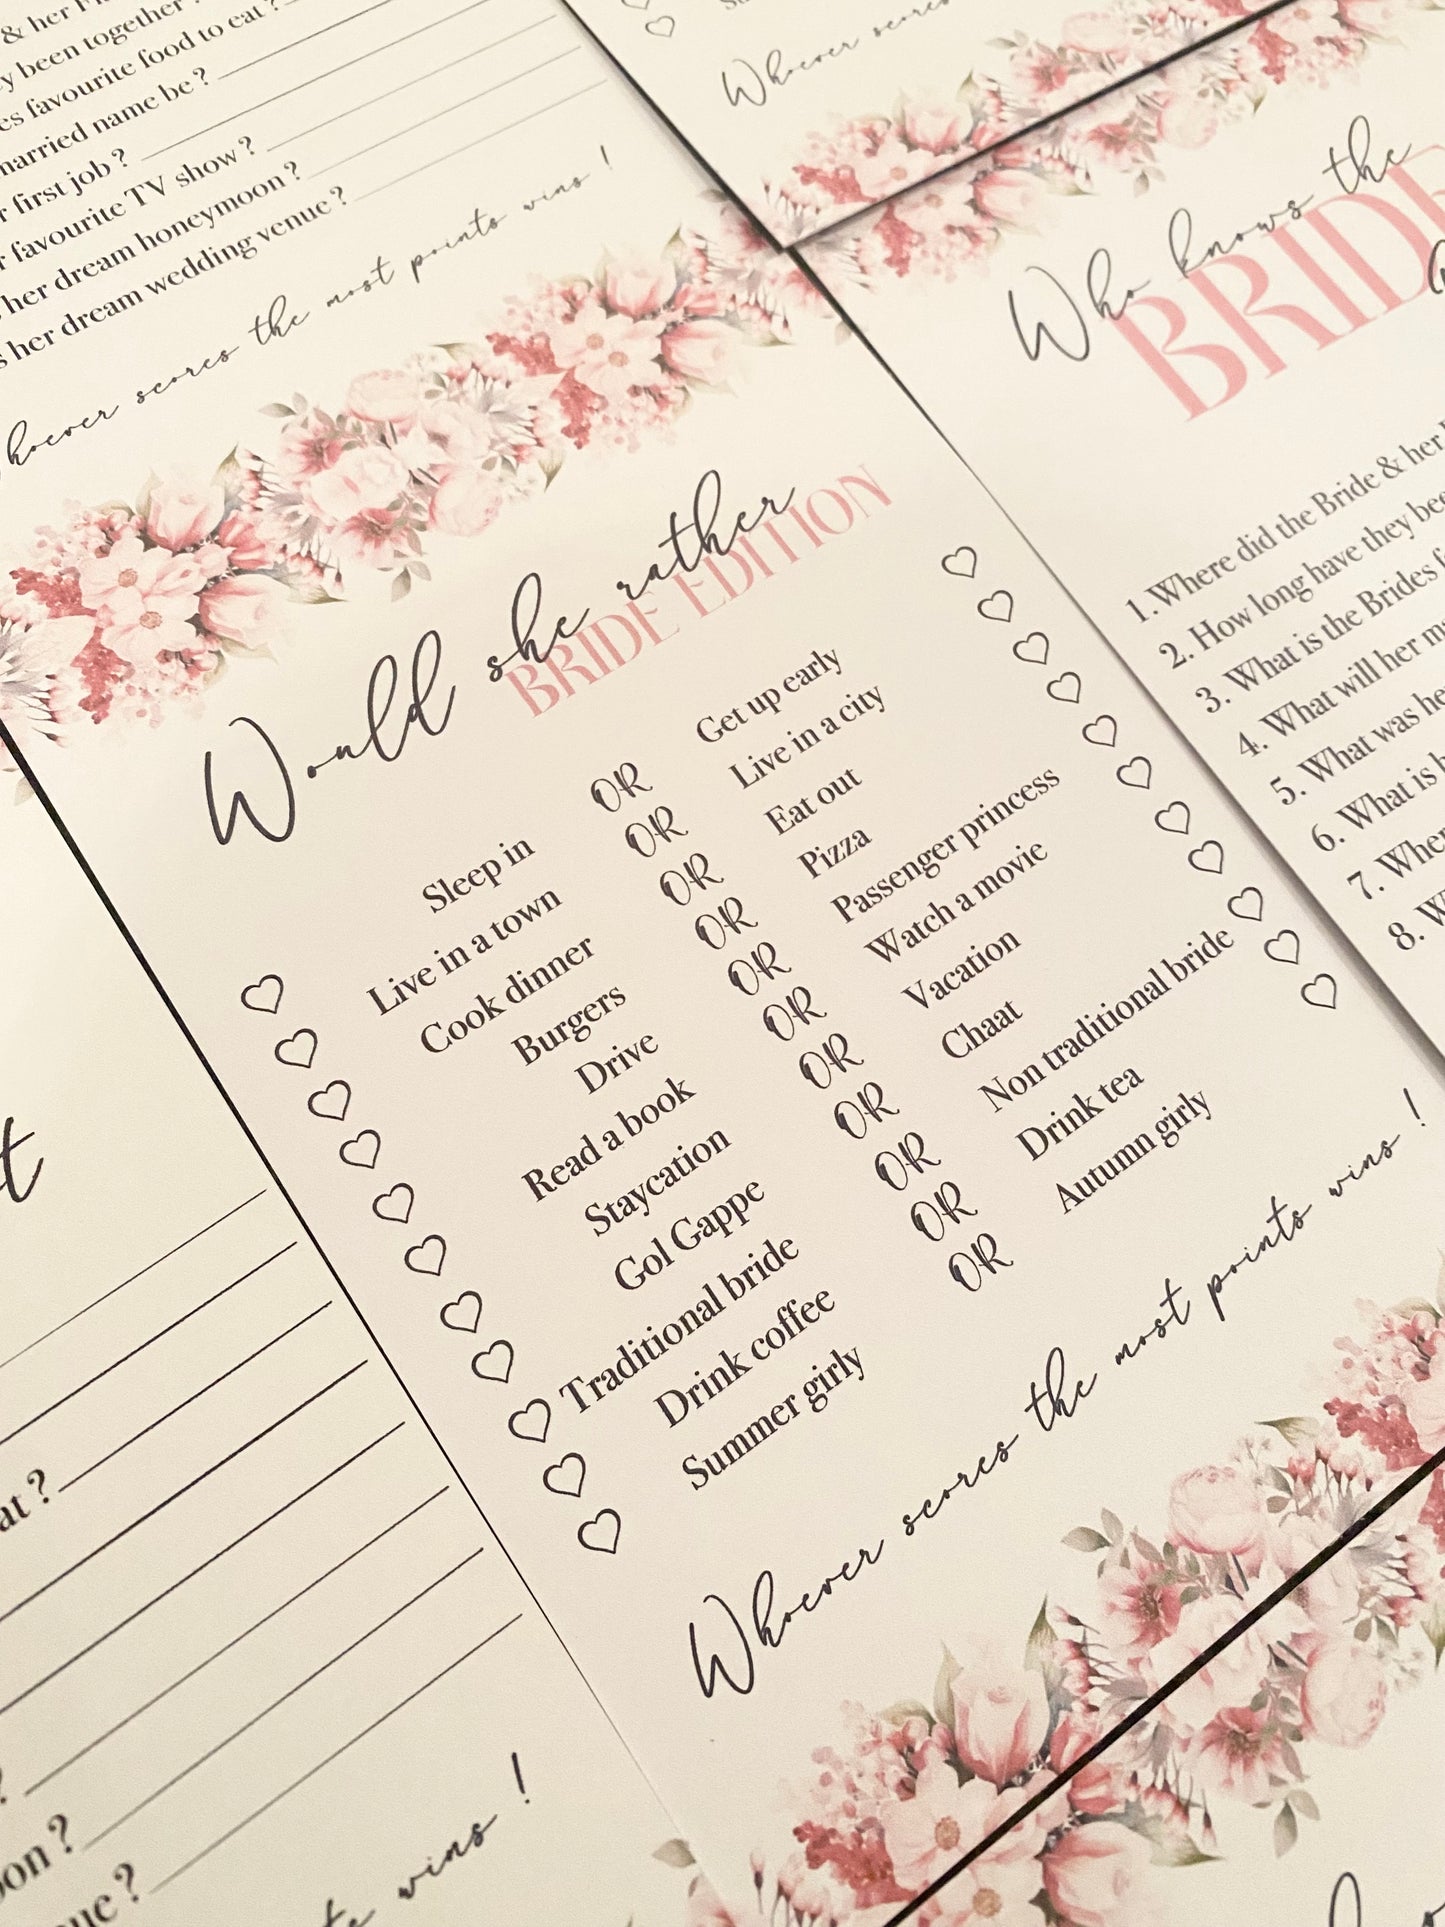 & her
y been together ?
es favourite food to eat ?
married name be ?
first job ?
favourite TV show ?
her dream honeymoon ?
her dream wedding venue ?
hoever scores the most points wins !
Whoever scores
Who knows the
BRIDE
1. Where did the Bride & her
2. How long have they bee
3. What is the Brides f
4. What will her m
5. What was he
6. What is h
7. Wher
8. W
Would she rather
BRIDE EDITION
Sleep in OR Get up early
Live in a town OR Live in a city
Cook dinner OR Eat out
Burgers OR Pizza
Drive OR Passenger princess
Read a book OR Watch a movie
Staycation OR Vacation
Gol Gappe OR Chaat
Traditional bride OR Non traditional bride
Drink coffee OR Drink tea
Summer girly OR Autumn girly
Whoever scores the most points wins !
t
at ?
?
oon ?
ue ?
wins !